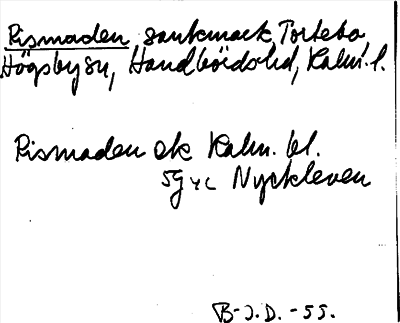 Rismaden sankmark Torlebo
Högsby sn, Handbörds hd, Kalm. l.
Rismaden ek Kalm. bl.
5G yc Nyckleven
B-J.D. -55.